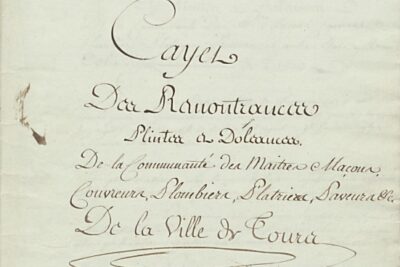 Cayer
Des Remontrances
Plintes & Doléances.
De la Communauté des Maitres Maçons,
Couvreurs, Plombiers, Platriers, Paveurs &c.
De la Ville de Tours